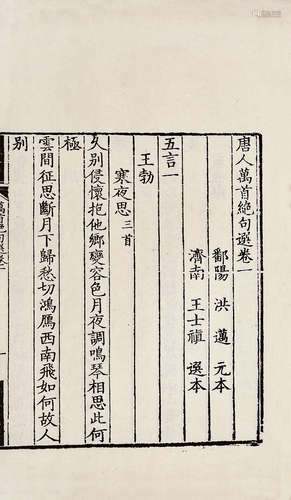 唐人萬首絶句選卷一
鄱陽 洪邁 元本
濟南 王士禛 選本
五言一
王勃
寒夜思三首
久別侵懷抱他鄉變容色月夜調鳴琴相思此何
極
雲間征思斷月下歸愁切鴻鴈西南飛如何故人
別
萬首絶句選卷一